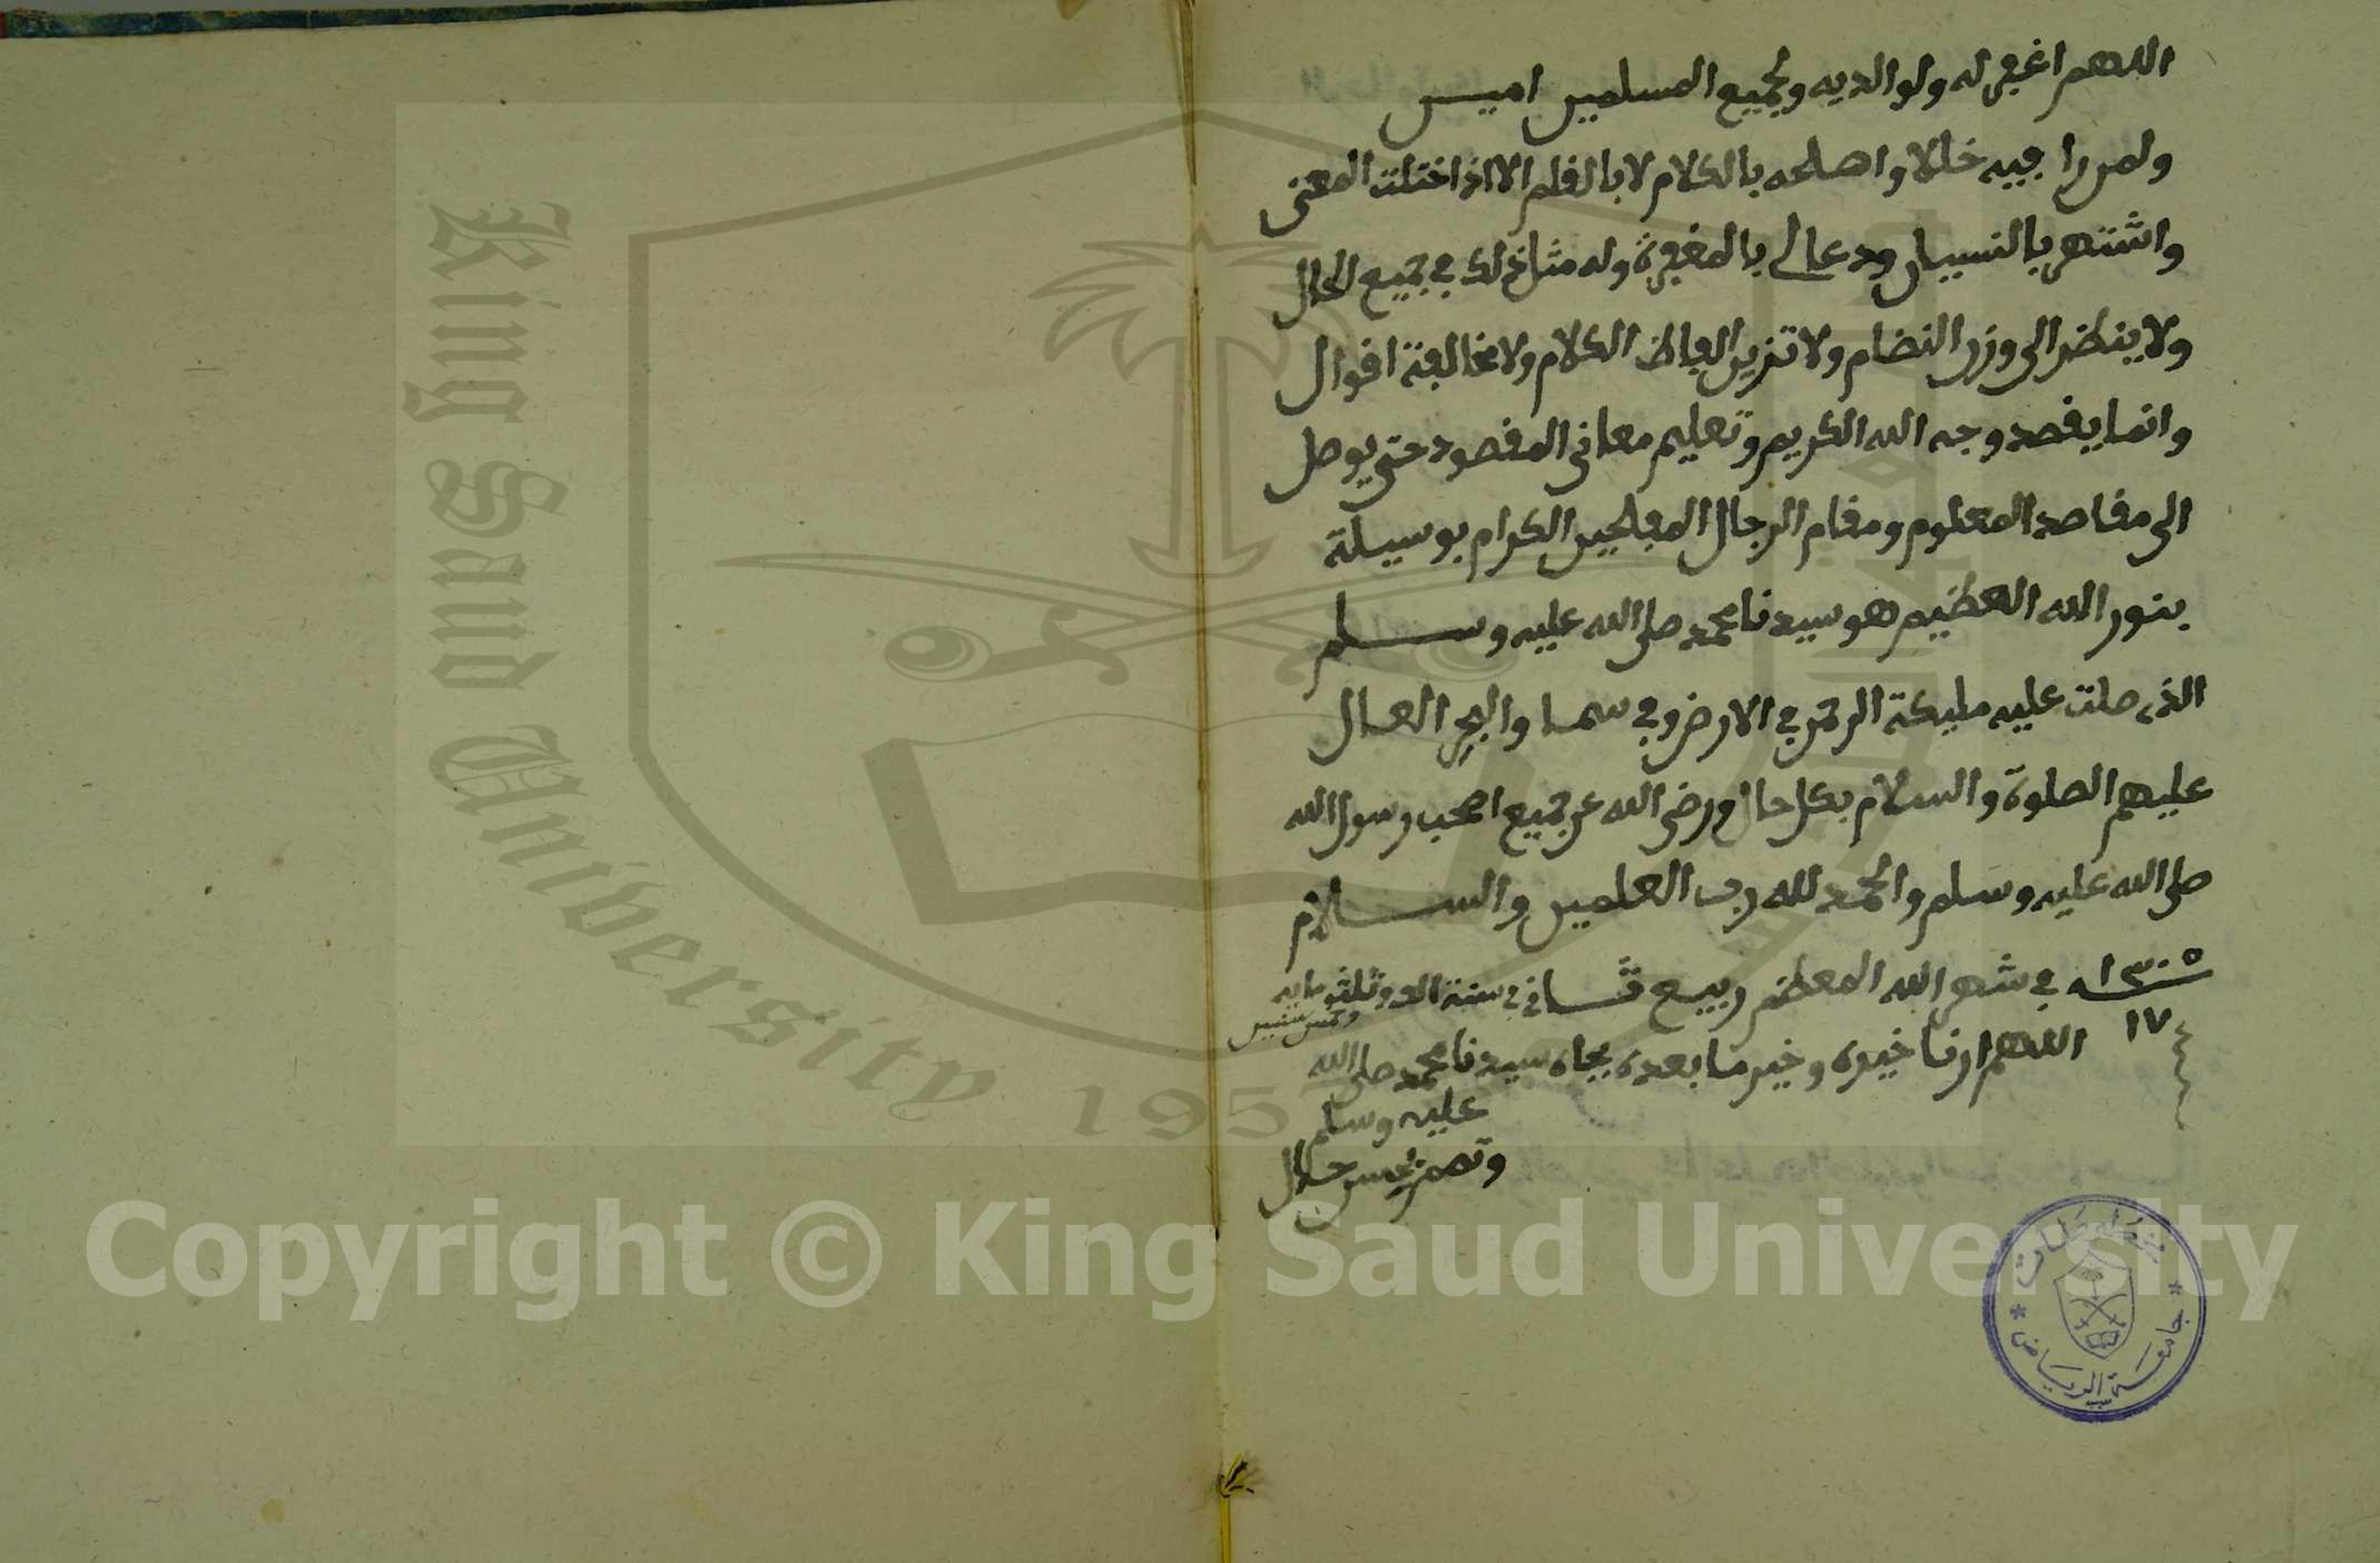 اللهم اغفر له ولوالديه ولجميع المسلمين امين
ولمن را فيه خللا واصلحه بالكلام لا بالقلم الا اذا اختلت المعنى
واشتهر بالنسيان ودعا لي بالمغفرة وله مثل ذلك في جميع الحال
ولا ينظر الى وزن النضام ولا تزين الفاظ الكلام ولا مخالفة اقوال
وانما يقصد وجه الله الكريم وتعليم معاني المقصود حتى يوصل
الى مقاصد المعلوم ومقام الرجال المفلحين الكرام بوسيلة
بنور الله العظيم هو سيدنا محمد صلى الله عليه وسلم
الذي صلت عليه مليكة الرحمن في الارض وفي سما والبحر العال
عليهم الصلوة والسلام بكل حال ورضي الله عن جميع اصحب رسول الله
صلى الله عليه وسلم والحمد لله رب العلمين والسلام
١٣٠٥ سنه في شهر الله المعظم ربيع ثاني في سنة الف وثلثومايه
وخمس سنين
١٧ اللهم ارنا خيره وخير ما بعده بجاه سيدنا محمد صلى الله
عليه وسلم
وتمم بحسن حال
جامعة الرياض
King Saud University
195
Copyright © King Saud University